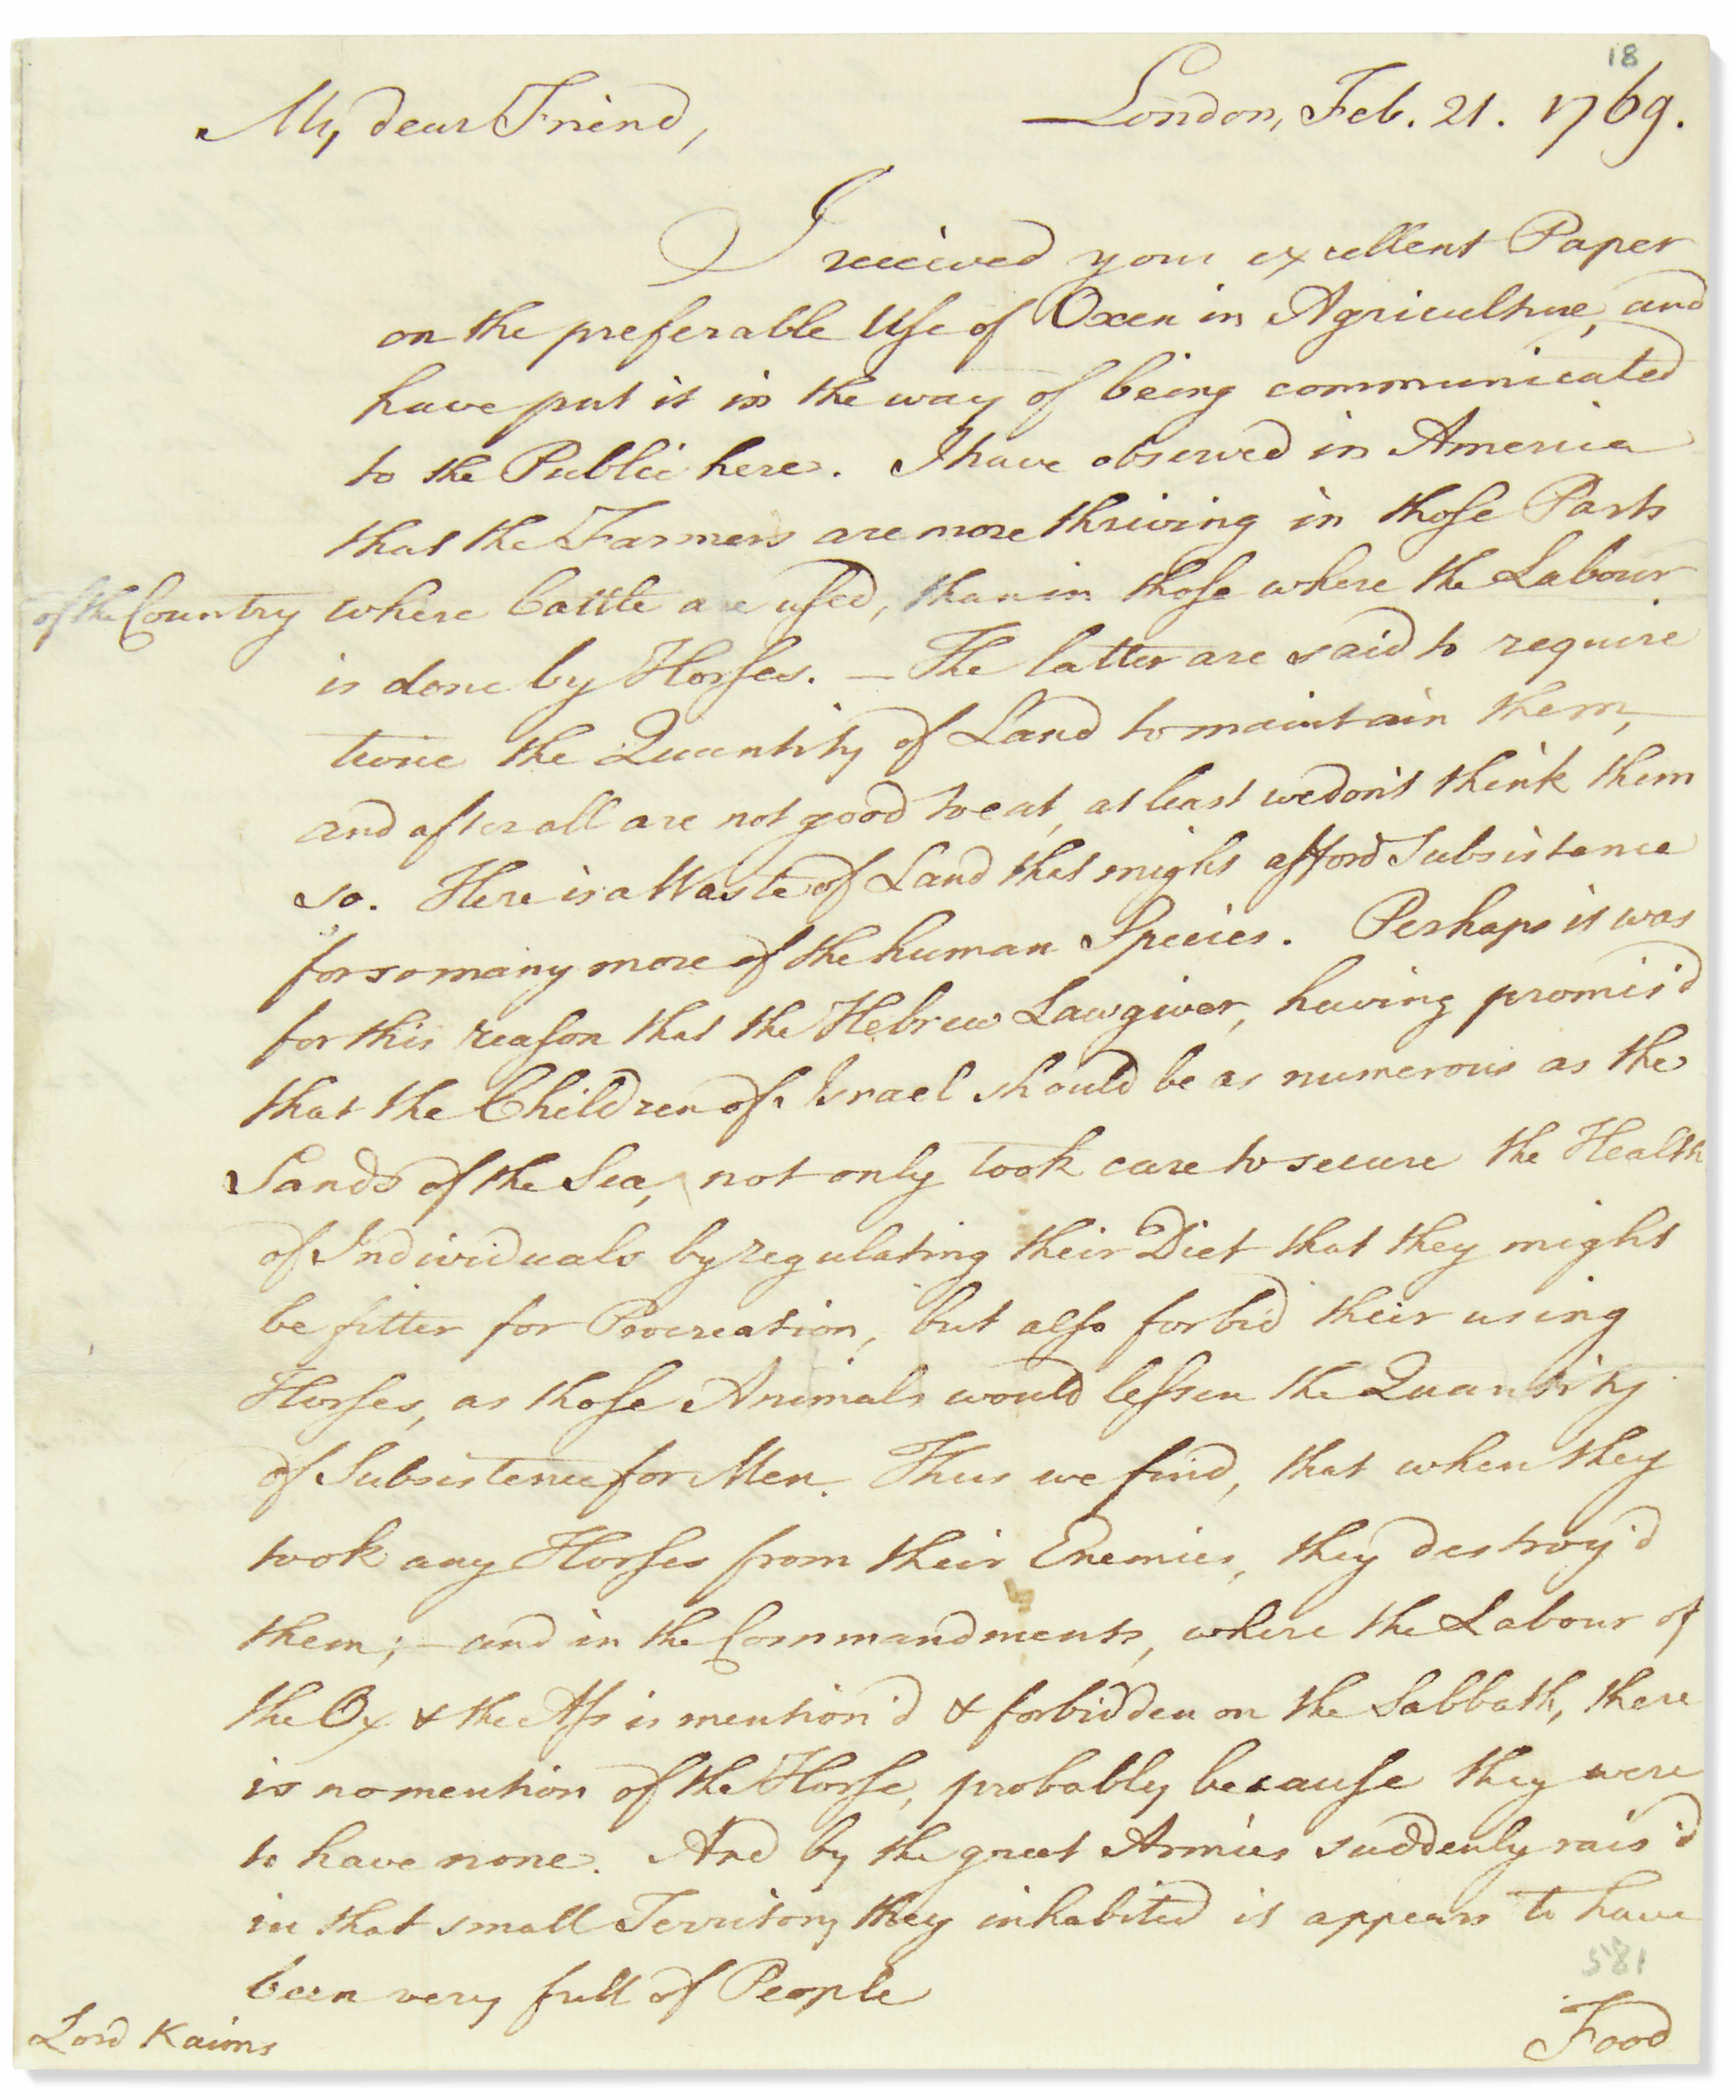 18
My dear Friend, London, Feb. 21. 1769.
I received your excellent Paper
on the preferable Use of Oxen in Agriculture, and
have put it in the way of being communicated
to the Public here. I have observed in America
that the Farmers are more thriving in those Parts
of the Country where Cattle are used, than in those where the Labour
is done by Horses. — The latter are said to require
twice the Quantity of Land to maintain them,
and after all are not good to eat, at least we don't think them
so. Here is a Waste of Land that might afford Subsistence
for so many more of the human Species. Perhaps it was
for this reason that the Hebrew Lawgiver, having promis'd
that the Children of Israel should be as numerous as the
Sands of the Sea, not only took care to secure the Health
of Individuals by regulating their Diet that they might
be fitter for Procreation, but also forbid their using
Horses, as those Animals would lessen the Quantity
of Subsistence for Men. Thus we find, that when they
took any Horses from their Enemies, they destroy'd
them; — and in the Commandments, where the Labour of
the Ox & the Ass is mention'd & forbidden on the Sabbath, there
is no mention of the Horse, probably because they were
to have none. And by the great Armies suddenly rais'd
in that small Territory they inhabited it appears to have
been very full of People
Lord Kaims Food